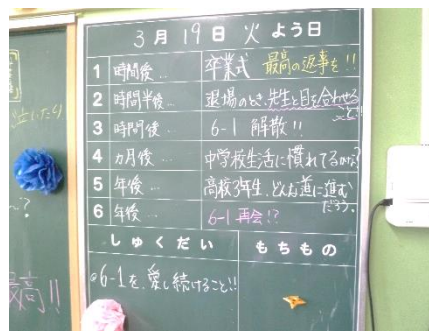 3月19日火よう日
1 時間後… 卒業式 最高の返事を!!
2 時間半後… 退場のとき、先生と目を合わせる
こと!!
3 時間後… 6-1 解散!!
4 カ月後… 中学校生活に慣れてるかな?
5 年後… 高校3年生、どんな道に進む
だろう。
6 年後… 6-1 再会!?
しゅくだい もちもの
◎6-1を、愛し続けること!!
最高!!